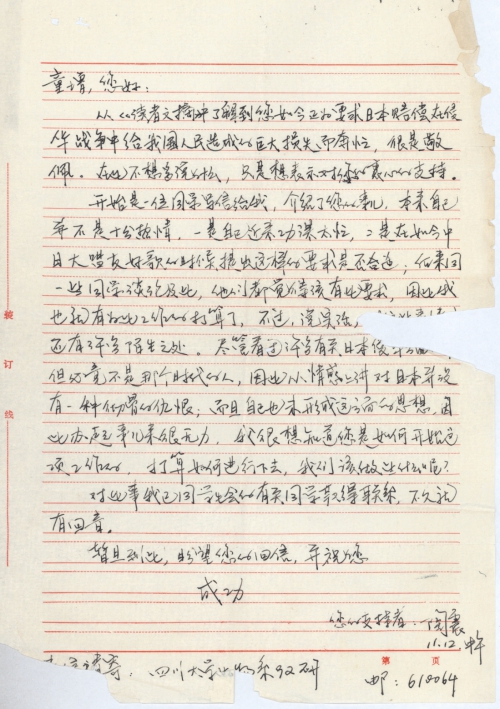 童增，您好：
从《读者文摘》中了解到您如今正为要求日本赔偿在侵
华战争中给我国人民造成的巨大损失而奔忙，很是敬
佩。在此不想多说什么，只是想表示对您的衷心的支持。
开始是一位同学写信给我，介绍了您的事儿，本来自己
并不是十分热情，一是自己近来功课太忙，二是在如今中
日大唱友好歌的时候提出这样的要求是否合适；但来同
一些同学谈论及此，他们都觉得应该有此要求，因此我
也就有了此工作的打算了，不过，说实话，
还有许多陌生之处。尽管看过许多有关日本侵华
但必竟不是那个时代的人，因此从情感上讲对日本并没
有一种仇恨的仇恨；而且自己也未形成这方面的思想，因
此办起事儿来很无力，我很想知道您是如何开始这
项工作的，打算如何进行下去，我们该做些什么呢？
对此事我已同学生会的有关同学取得联系，不久就
有回音。
暂且到此，盼望您的回信，并祝您
成功
您的支持者：闵震
11.12.中午
装订线
第 页
四川大学 系92研
邮：610064